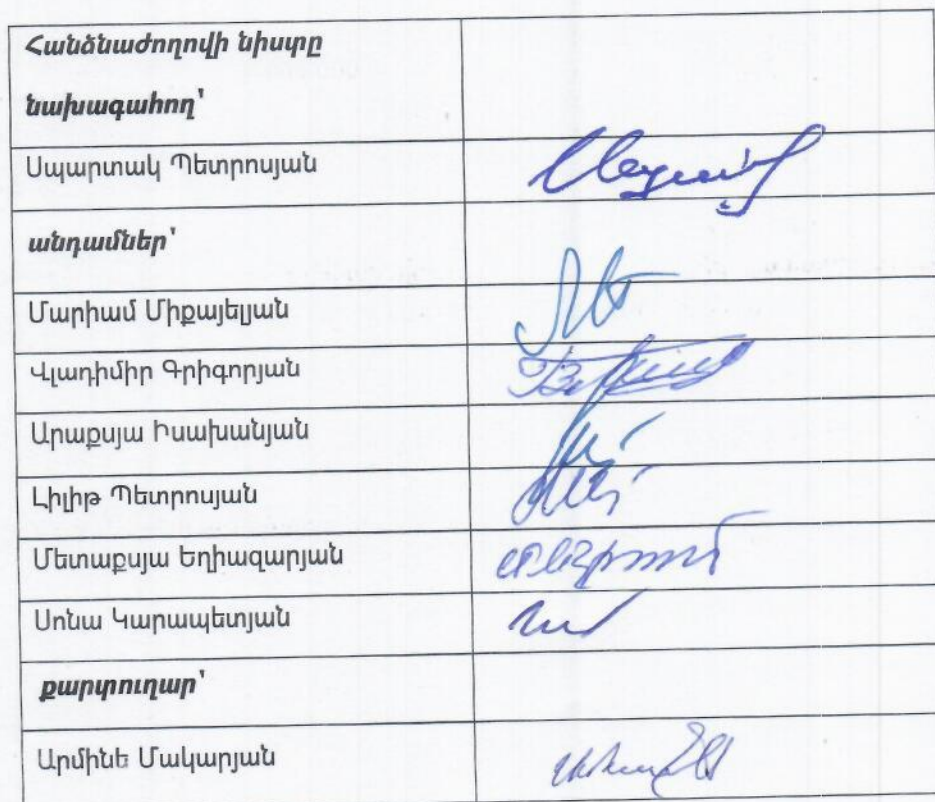 Հանձնաժողովի նիստը
նախագահող՝
Սպարտակ Պետրոսյան
անդամներ՝
Մարիամ Միքայելյան
Վլադիմիր Գրիգորյան
Արաքսյա Իսախանյան
Լիլիթ Պետրոսյան
Մետաքսյա Եղիազարյան
Սոնա Կարապետյան
քարտուղար՝
Արմինե Մակարյան